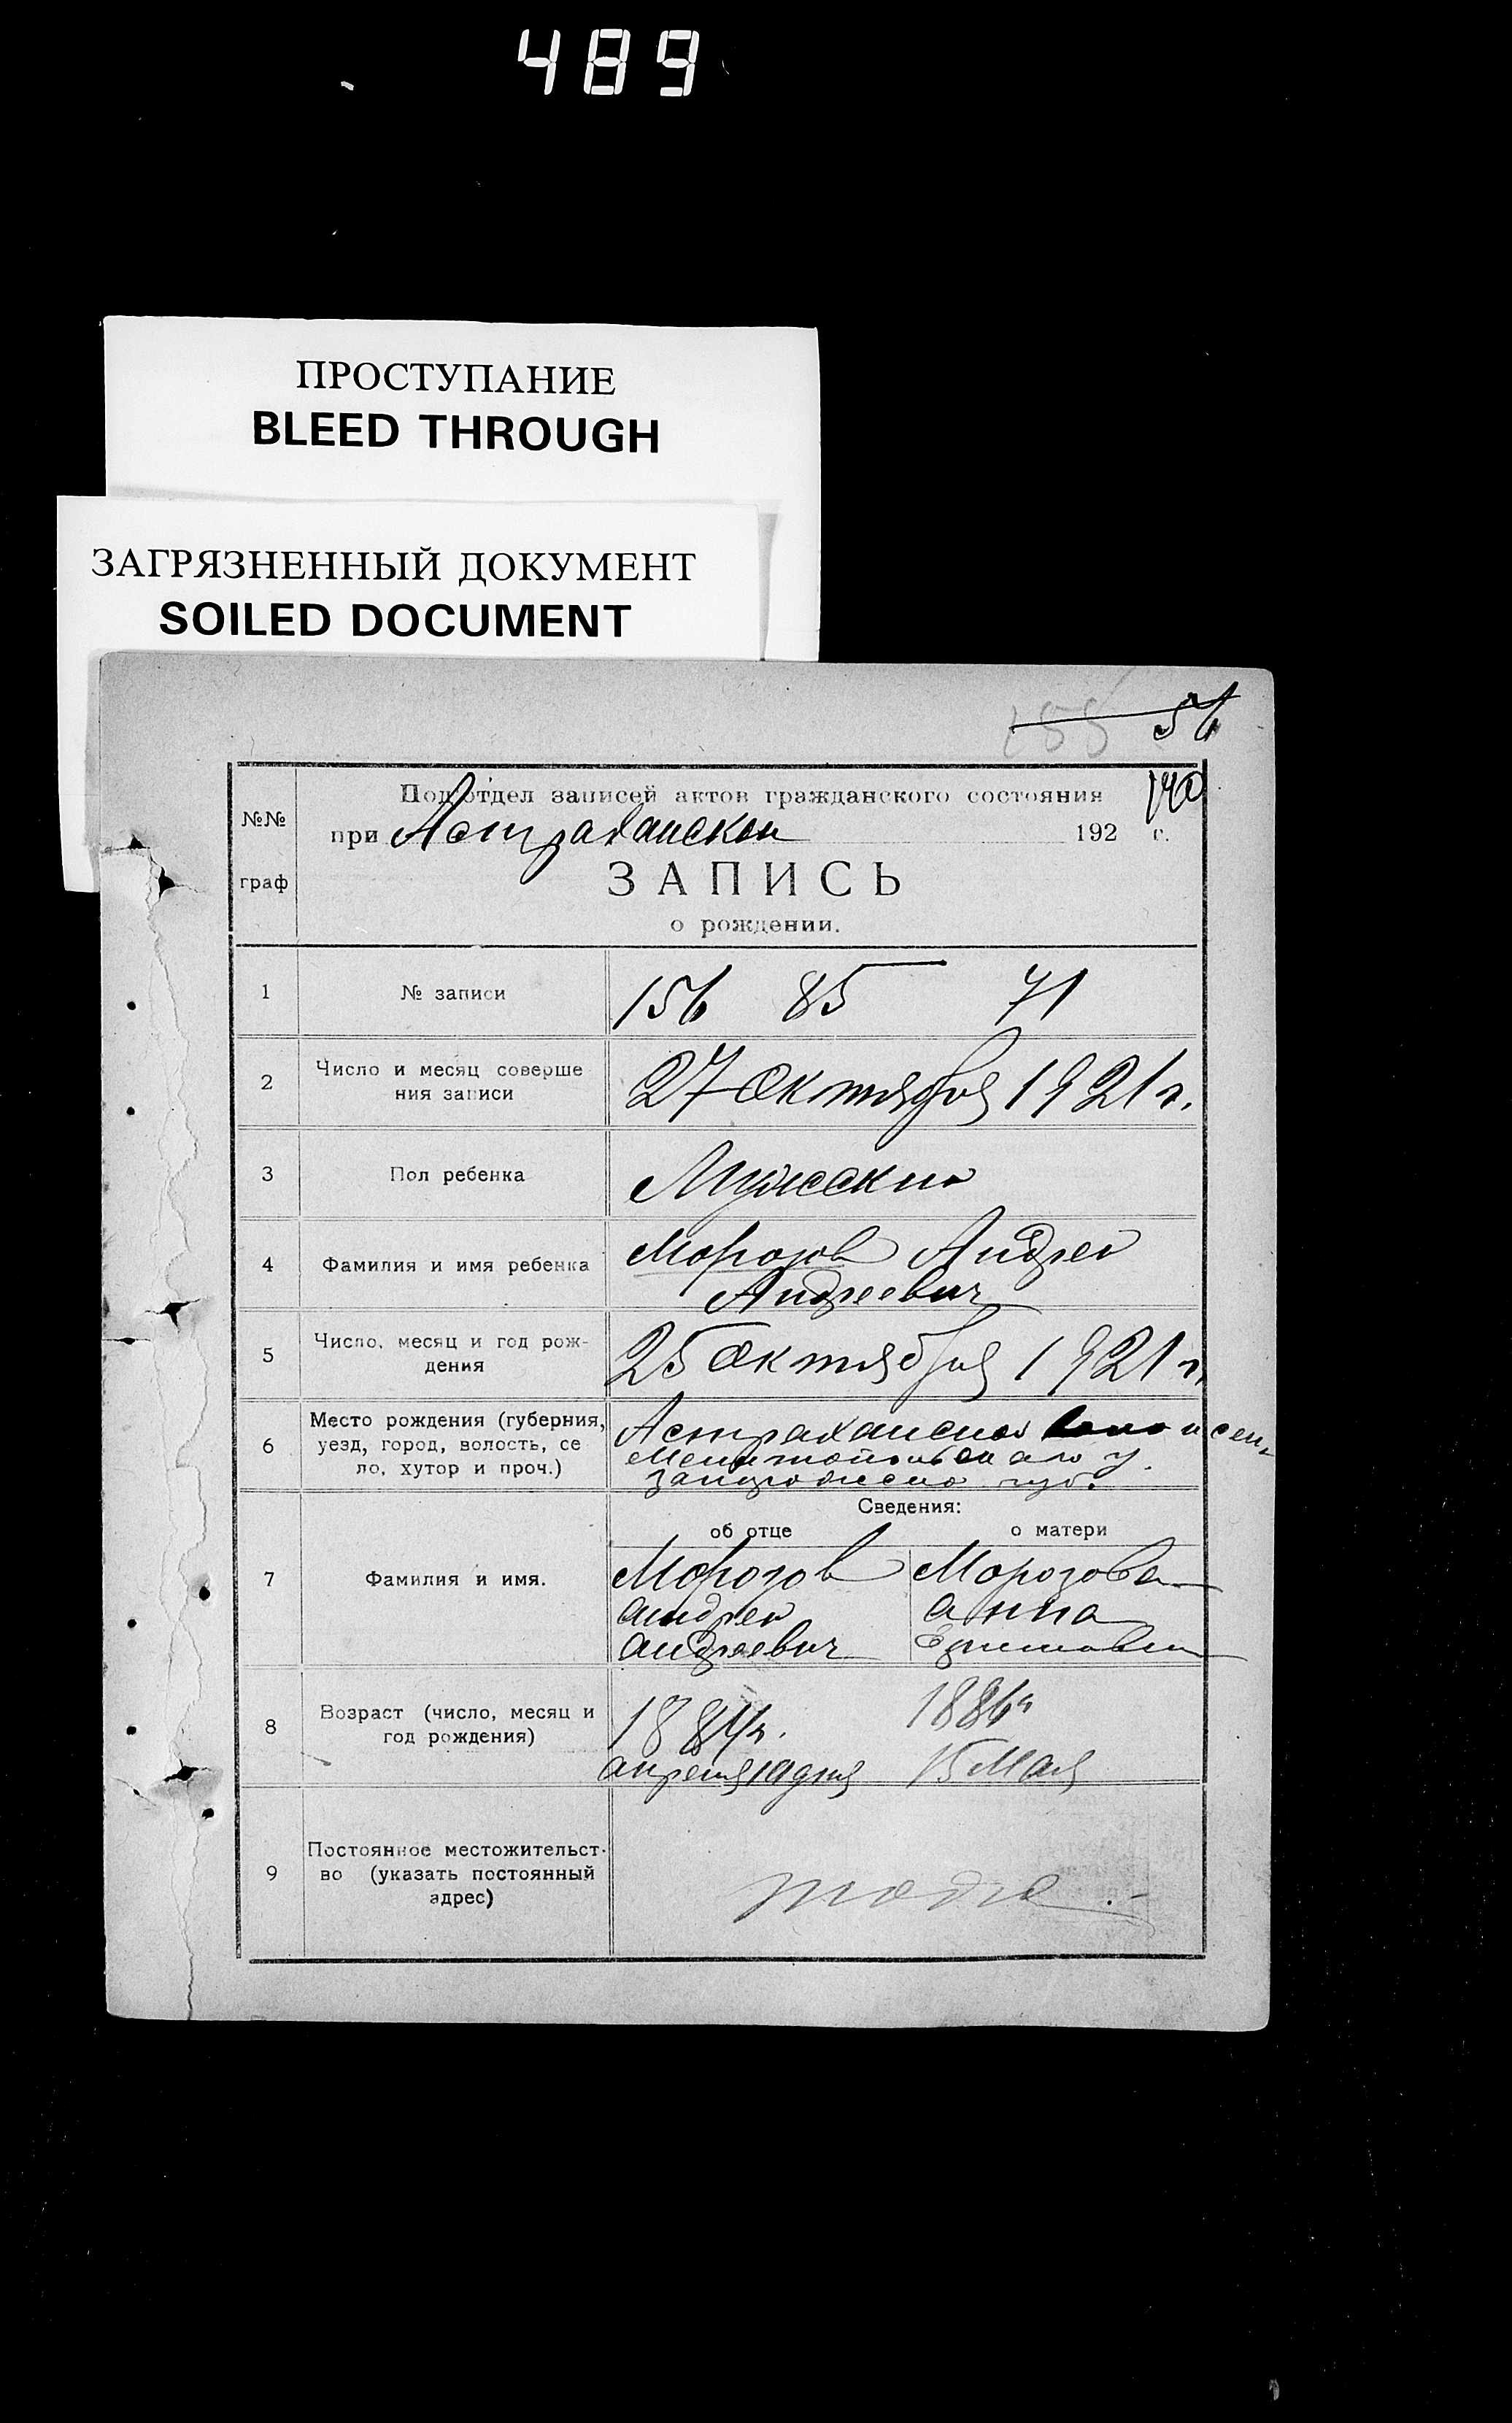 489
ПРОСТУПАНИЕ
BLEED THROUGH
ЗАГРЯЗНЕННЫЙ ДОКУМЕНТ
SOILED DOCUMENT
155 56
140
№№
граф
Под'отдел записей актов гражданского состояния
при Астраханском 192 г.
ЗАПИСЬ
о рождении.
1 № записи 156 85 71
2 Число и месяц соверше
ния записи 27 Октября 1921 г.
3 Пол ребенка Мужской
4 Фамилия и имя ребенка Морозов Андрей
Андреевич
5 Число, месяц и год рож-
дения 25 Октября 1921 г.
6 Место рождения (губерния,
уезд, город, волость, се
ло, хутор и проч.)
Астраханской
Мелитопольскаго у.
губ.
Сведения:
об отце о матери
7 Фамилия и имя.
Морозов Морозова
Андрей Анна
Андреевич
8 Возраст (число, месяц и
год рождения)
1884 г. 1886 г
апреля 19 дня 15 Мая
9 Постоянное местожительст-
во (указать постоянный
адрес)
тоже